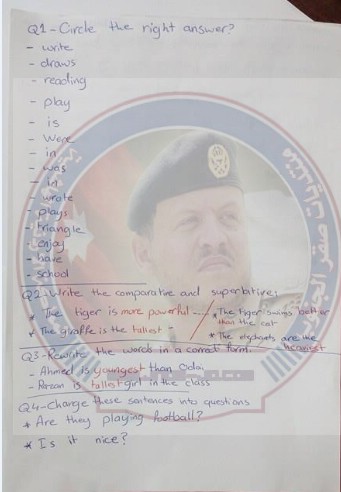 Q1 - Circle the right answer?
- write
- draws
- reading
- play
- is
- Were
- in
- was
- in
- wrote
- plays
- triangle
- enjoy
- have
- school
Q2 - Write the comparative and superlative:
* The tiger is more powerful ....
* The giraffe is the tallest -
* The tiger swims better than the cat
* The elephants are the heaviest
Q3 - Rewrite the words in a correct form.
- Ahmed is youngest than
- is tallest girl in the class
Q4 - Change these sentences into questions
* Are they playing football?
* Is it nice?